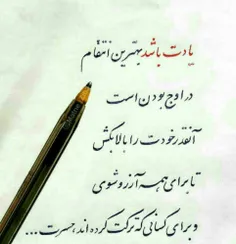 یادت باشد بهترین انتقام
در اوج بودن است
آنقدر خودت را بالا بکش
تا برای همه آرزو شوی
و برای کسانی که ترکت کرده اند، حسرت...